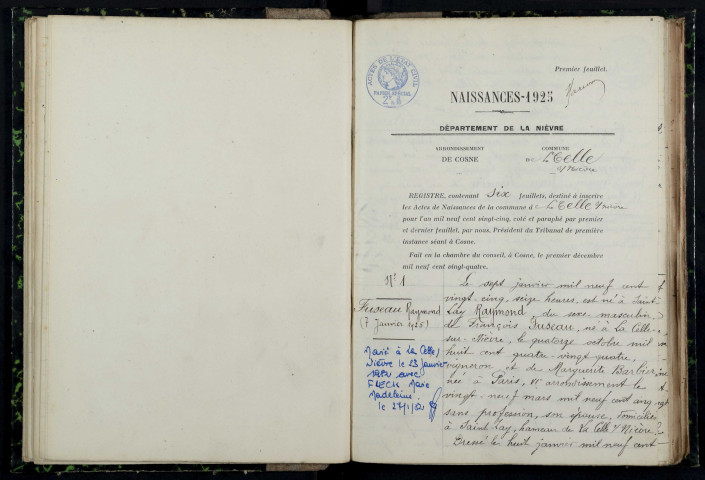 Premier feuillet.
ACTES DE L'ETAT CIVIL
PAPIER SPECIAL
NAISSANCES-1925
DÉPARTEMENT DE LA NIÈVRE
ARRONDISSEMENT
DE COSNE
COMMUNE
DE La Celle
s/ Nièvre
REGISTRE, contenant six feuillets, destiné à inscrire
les Actes de Naissances de la commune d La Celle s/ Nièvre
pour l'an mil neuf cent vingt-cinq, coté et paraphé par premier
et dernier feuillet, par nous, Président du Tribunal de première
instance séant à Cosne.
Fait en la chambre du conseil, à Cosne, le premier décembre
mil neuf cent vingt-quatre.
N° 1
Fuseau Raymond
(7 Janvier 1925)
Marié à La Celle/
Nièvre le 23 janvier
avec
FLECH Marie
Madeleine.
le 27/1/52
Le sept janvier mil neuf cent
vingt-cinq, seize heures, est né à Saint-
Lay Raymond du sexe masculin,
de François Fuseau, né à La Celle-
sur-Nièvre, le quatorze octobre mil
huit cent quatre-vingt-quatre,
vigneron et de Marguerite Barbier,
née à Paris, VI arrondissement le
vingt-neuf mars mil neuf cent cinq
sans profession, son épouse, domiciliés
à Saint Lay, hameau de La Celle s/ Nièvre.
Dressé le huit janvier mil neuf cent